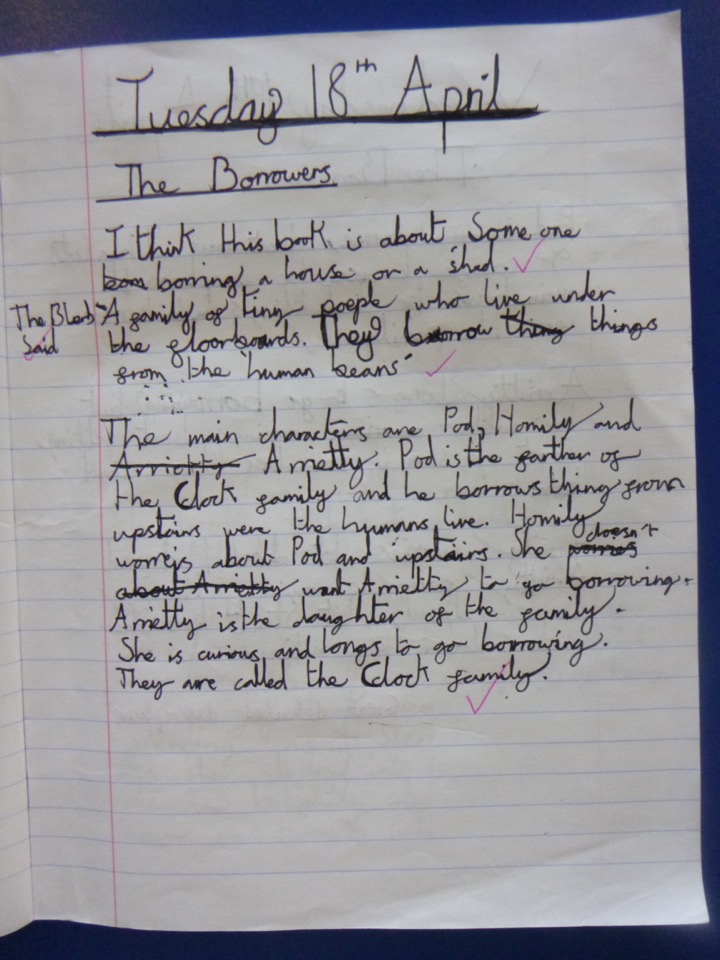 Tuesday 18th April
The Borrowers
I think this book is about Some one
boo borring a house or a shed.
The Blerb "A family of tiny poeple who live under
Said the floorboards. They borrow thing things
from the "human beans"
The main characters are Pod, Homily and
Arriettty Arrietty. Pod is the farther of
the Clock family and he borrows thing from
upstairs were the humans live. Homily
worreys about Pod and upstairs. She worres doesn't
about Arrietty want Arrietty to go borrowing.
Arrietty is the daughter of the family.
She is curious and longs to go borrowing.
They are called the Clock family.